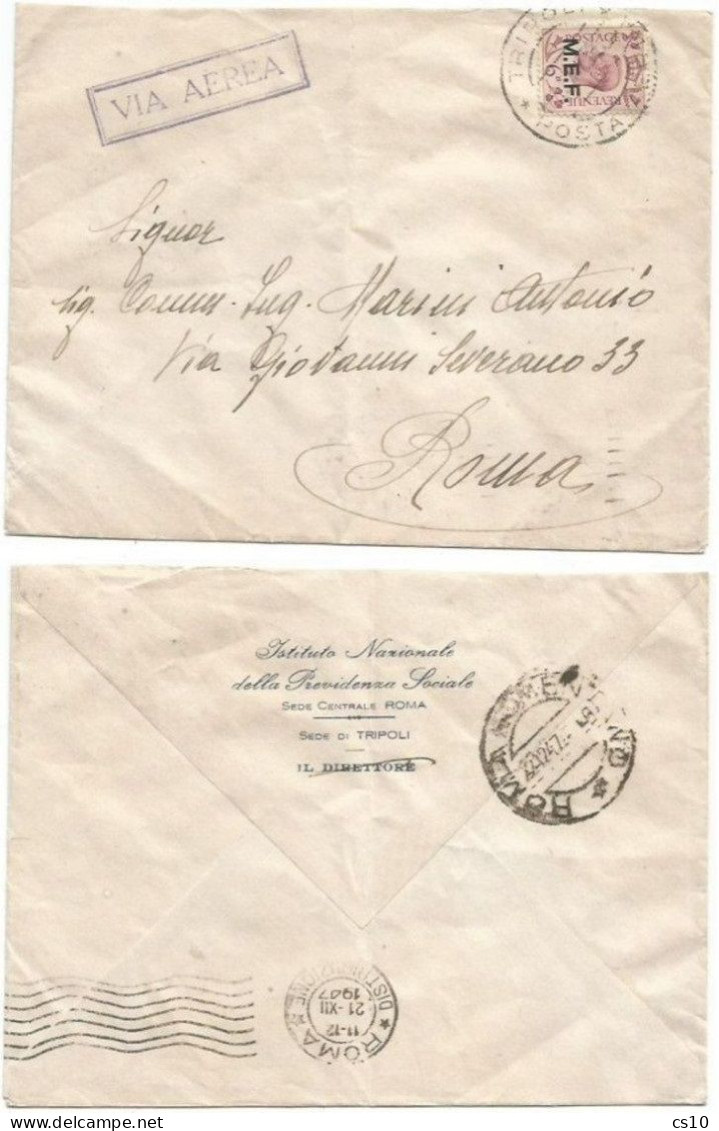 VIA AEREA
TRIPOLI
POSTA
POSTAGE REVENUE
M.E.F.
6D
Signor
Sig. Comm. Ing. Marini Antonio
Via Giovanni Severano 33
Roma
Istituto Nazionale
della Previdenza Sociale
SEDE CENTRALE ROMA
SEDE DI TRIPOLI
IL DIRETTORE
ROMA NOMENTANO
22.12.47
ROMA
11-12
21-XII
1947
DISTRIBUZIONE
cs10